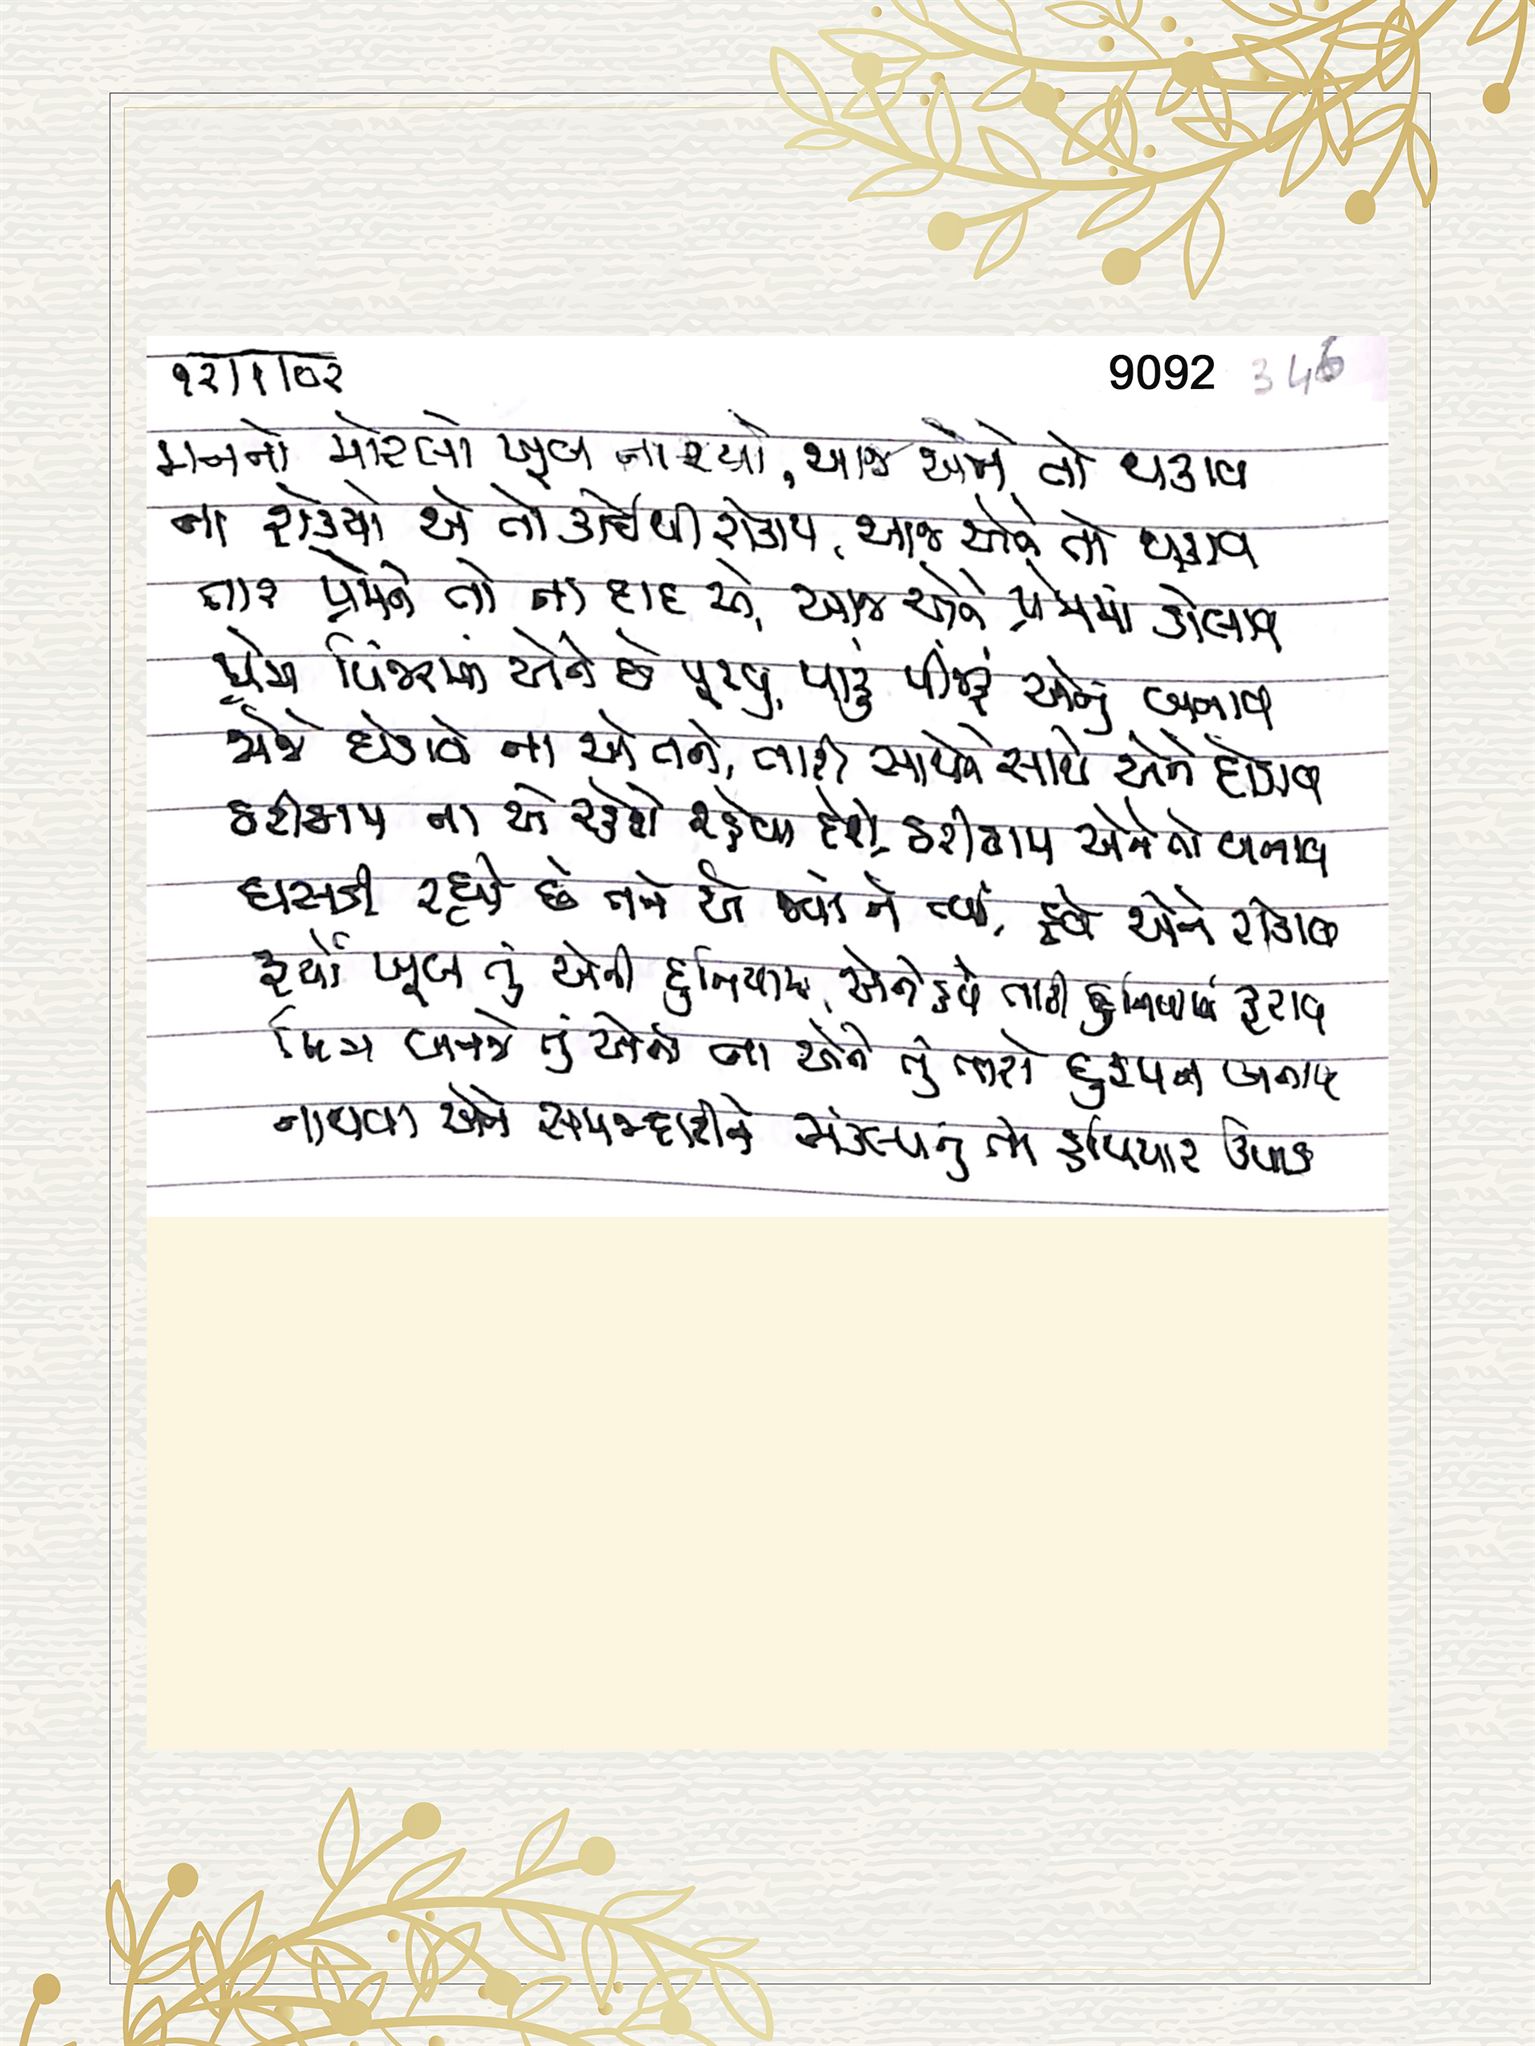 ૧૨/૧/૦૨
9092 346
મનનો મોરલો ખૂબ નાચ્યો, આજ એને તો થકાવ
ના રોક્યો એ તો કોઈથી રોકાય, આજ એને તો થકાવ
તારા પ્રેમને તો ના દાદ એ, આજ એને પ્રેમમાં ડોલાવ
પ્રેમ પિંજરમાં એને છે પૂરવું, પાકું પીંજરું એનું બનાવ
જોજે દોડાવે ના એ તને, તારી સાથેને સાથે એને દોડાવ
ઠરીઠામ ના એ રહેશે રહેવા દેશે, ઠરીઠામ એને તો બનાવ
ઘસડી રહ્યો છે તને એ જ્યાં ને ત્યાં, હવે એને રોકાવ
ફર્યો ખૂબ તું એની દુનિયામાં, એને હવે તારી દુનિયામાં ફરાવ
મિત્ર બનજે તું એનો ના એને તું તારો દુશ્મન બનાવ
નાથવા એને સમજદારીને સંકલ્પનું તો હથિયાર ઉપાડ